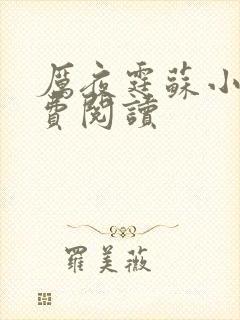 厲夜霆蘇小
費閱讀
羅美薇